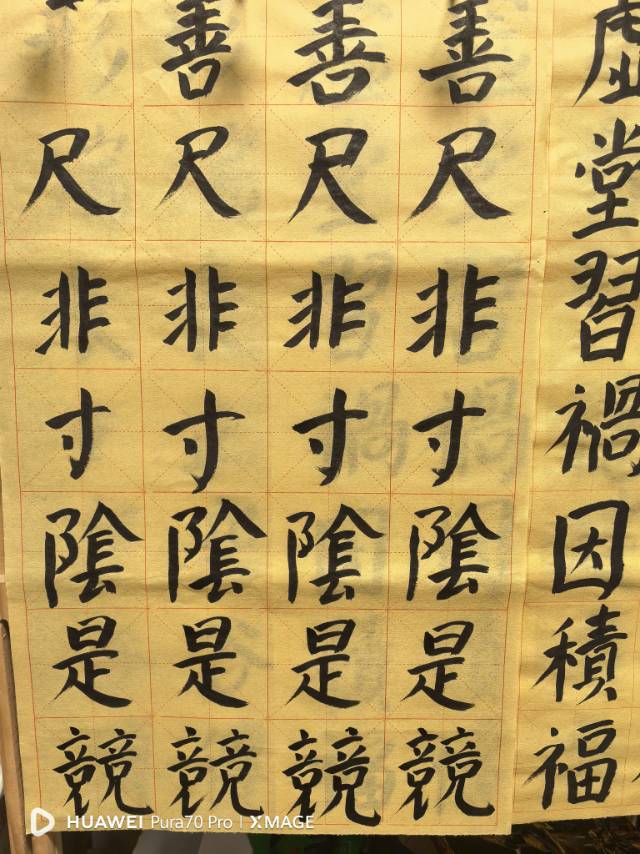 虛堂習禍因積福
善尺非寸陰是競
善尺非寸陰是競
善尺非寸陰是競
尺非寸陰是競
HUAWEI Pura70 Pro | XMAGE